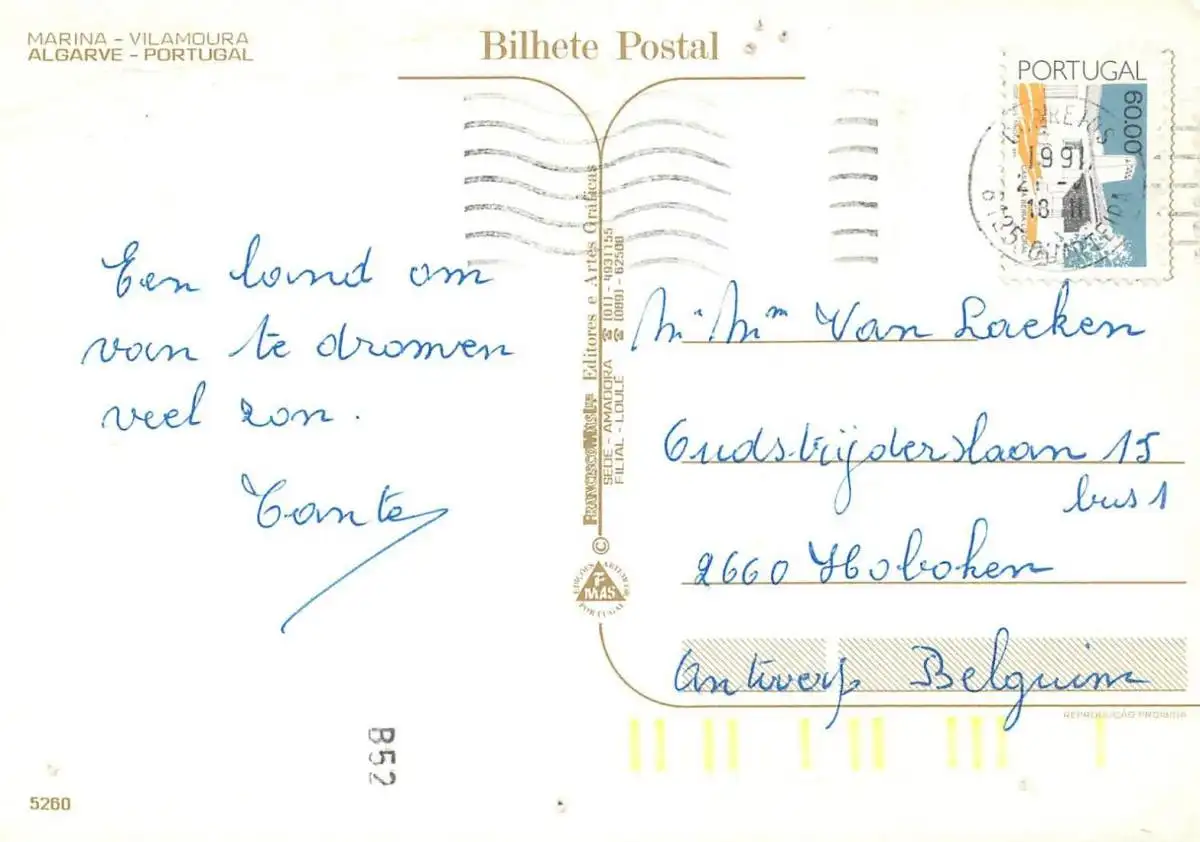 MARINA - VILAMOURA
ALGARVE - PORTUGAL
Bilhete Postal
PORTUGAL
60.00
CORREIOS
1991
18 H
8125 QUARTEIRA
Een land om
van te dromen
veel zon.
Tante
Mr Mm Van Laeken
Oudstrijderslaan 15
bus 1
2660 Hoboken
Antwerp Belguim
FRANCISCO MAS, Lda Editores e Artes Gráficas
SEDE - AMADORA ☎ (01) - 4931155
FILIAL - LOULÉ ☎ (089) - 62508
©
EDIÇÕES ARTISTICAS
F
MAS
PORTUGAL
REPRODUÇÃO PROIBIDA
B52
5260